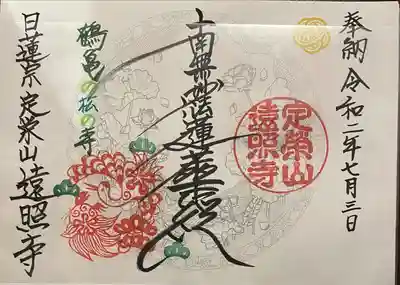 奉納 令和二年七月三日
南無妙法蓮華経
定榮山
遠照寺
鶴亀の松の寺
日蓮宗 定栄山 遠照寺